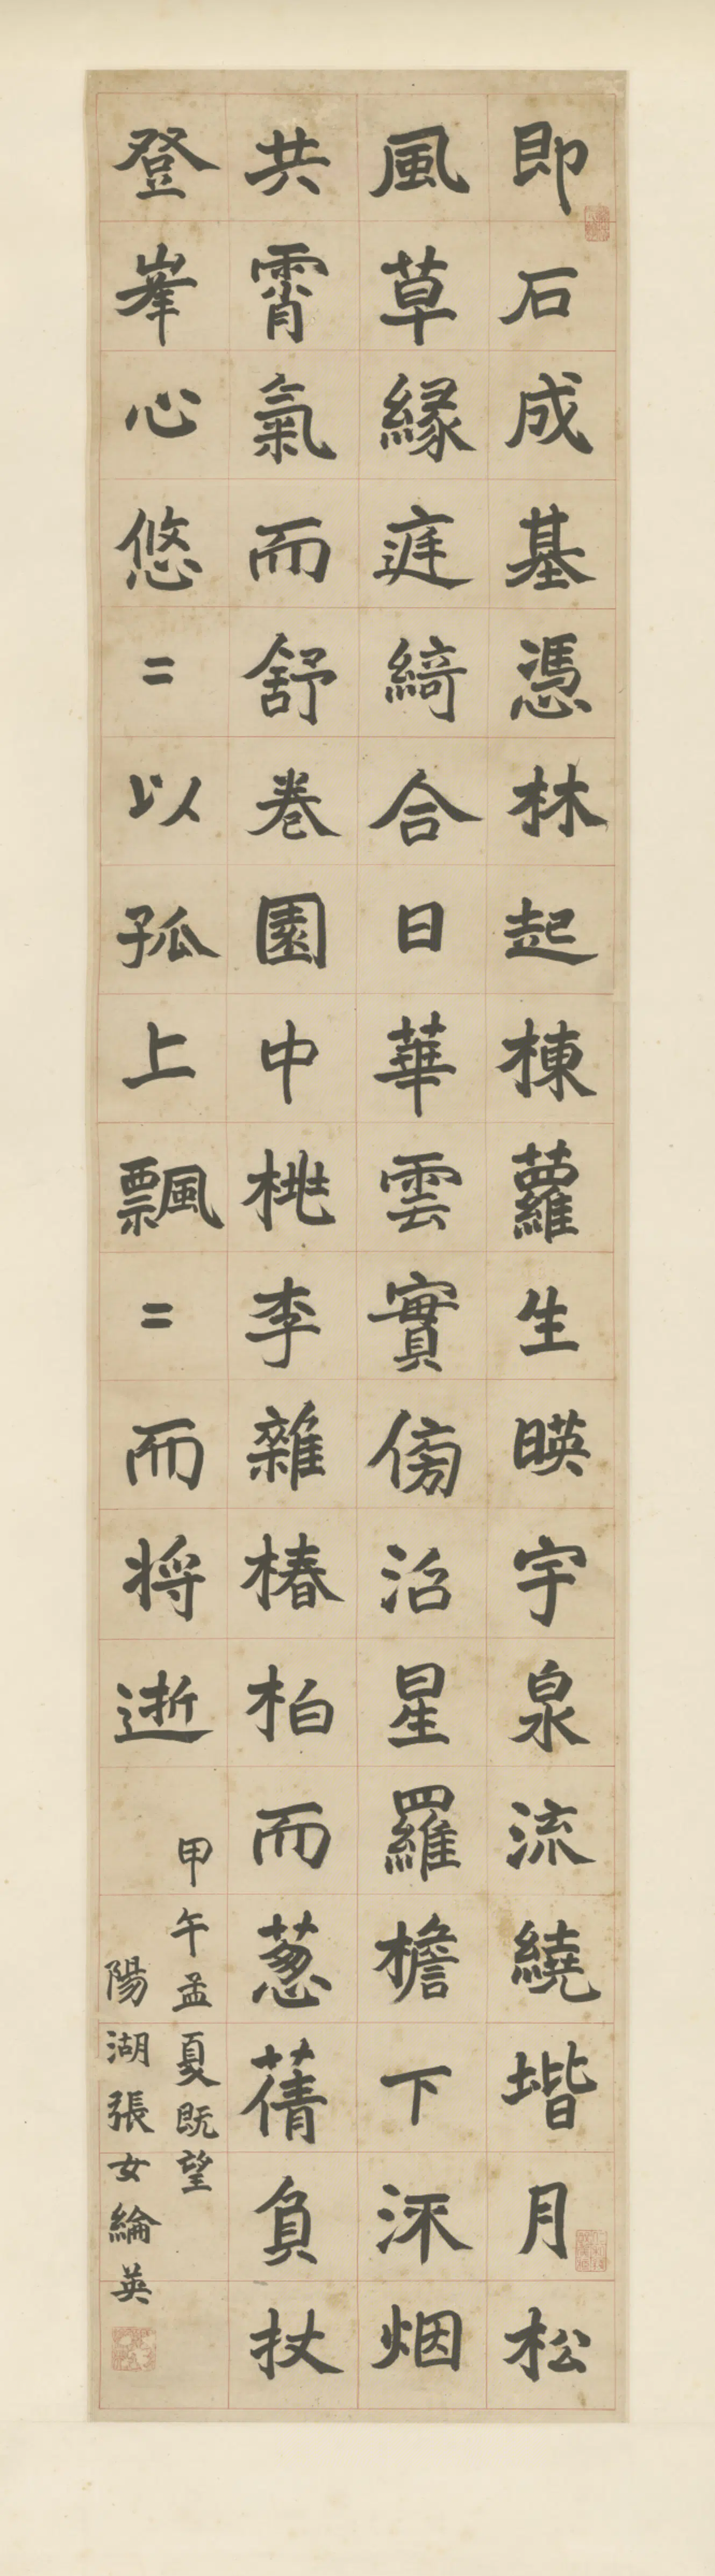 即石成基憑林起棟蘿生暎宇泉流繞堦月松
風草緣庭綺合日華雲實傍沼星羅檐下流烟
共霄氣而舒卷園中桃李雜椿柏而蔥蒨負杖
登峯心悠〻以孤上飄〻而将逝
甲午孟夏既望
陽湖張女綸英